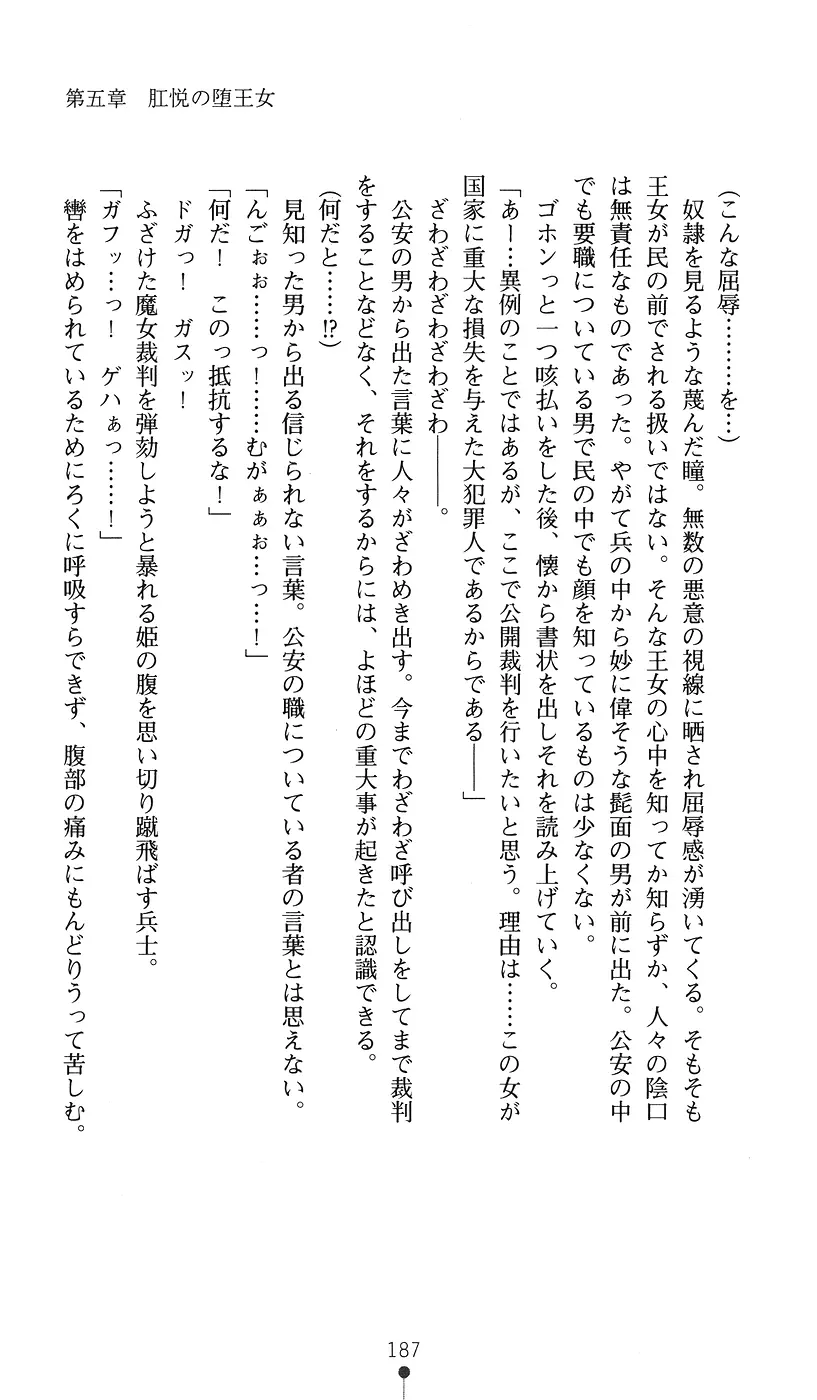 第五章　肛悦の堕王女
（こんな屈辱………を…）
　奴隷を見るような蔑んだ瞳。無数の悪意の視線に晒され屈辱感が湧いてくる。そもそも
王女が民の前でされる扱いではない。そんな王女の心中を知ってか知らずか、人々の陰口
は無責任なものであった。やがて兵の中から妙に偉そうな髭面の男が前に出た。公安の中
でも要職についている男で民の中でも顔を知っているものは少なくない。
　ゴホンっと一つ咳払いをした後、懐から書状を出しそれを読み上げていく。
「あー…異例のことではあるが、ここで公開裁判を行いたいと思う。理由は……この女が
国家に重大な損失を与えた大犯罪人であるからである――」
　ざわざわざわざわ――。
　公安の男から出た言葉に人々がざわめき出す。今までわざわざ呼び出しをしてまで裁判
をすることなどなく、それをするからには、よほどの重大事が起きたと認識できる。
（何だと……!?）
　見知った男から出る信じられない言葉。公安の職についている者の言葉とは思えない。
「んごぉぉ……っ！……むがぁぁぉ…っ…！」
「何だ！　このっ抵抗するな！」
　ドガっ！　ガスッ！
　ふざけた魔女裁判を弾劾しようと暴れる姫の腹を思い切り蹴飛ばす兵士。
「ガフッ…っ！　ゲハぁっ……！」
　轡をはめられているためにろくに呼吸すらできず、腹部の痛みにもんどりうって苦しむ。
187